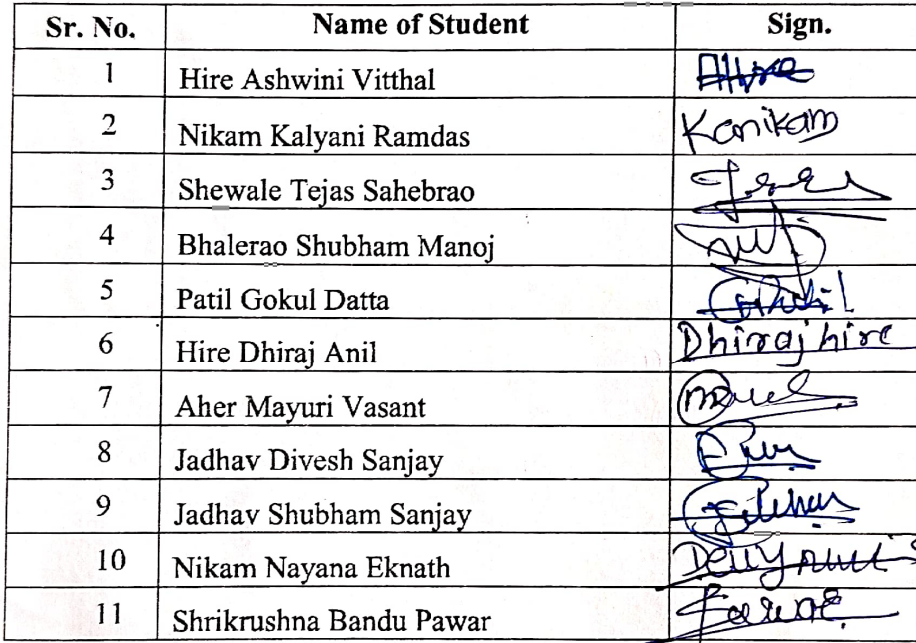 Sr. No. Name of Student Sign.
1 Hire Ashwini Vitthal AHire
2 Nikam Kalyani Ramdas Kanikam
3 Shewale Tejas Sahebrao
4 Bhalerao Shubham Manoj
5 Patil Gokul Datta
6 Hire Dhiraj Anil Dhiraj hire
7 Aher Mayuri Vasant
8 Jadhav Divesh Sanjay
9 Jadhav Shubham Sanjay
10 Nikam Nayana Eknath
11 Shrikrushna Bandu Pawar